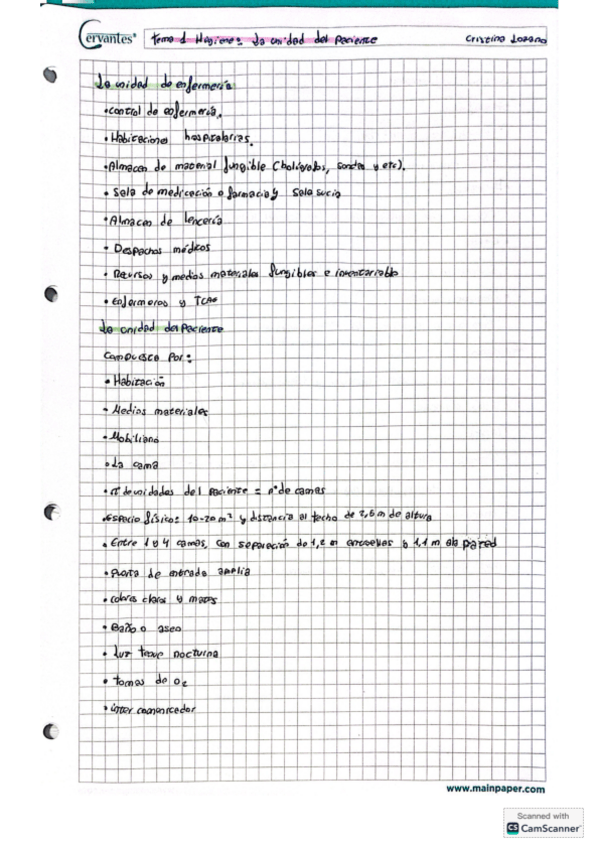 Cervantes® Tema 1 Higiene: La unidad del Paciente Cristina Lozano
La unidad de enfermería
• control de enfermería.
• Habitaciones hospitalarias.
• Almacen de material fungible (bolígrafos, sondas y etc).
• Sala de medicación o farmacia y sala sucia
• Almacen de lencería
• Despachos médicos
• Recursos y medios materiales fungibles e inventariable
• Enfermeros y TCAE
La unidad del Paciente
Compuesto por:
• Habitación
• Medios materiales
• Mobiliario
• La cama
• nº de unidades del Paciente = nº de camas
• Espacio físico: 10-20 m² y distancia al techo de 2,6 m de altura
• Entre 1 y 4 camas, con separación de 1,2 m entre ellas y 1,1 m a la pared
• Puerta de entrada amplia
• colores claros y mates
• Baño o aseo
• luz tenue nocturna
• tomas de O₂
• inter comunicador
www.mainpaper.com
Scanned with
CS CamScanner